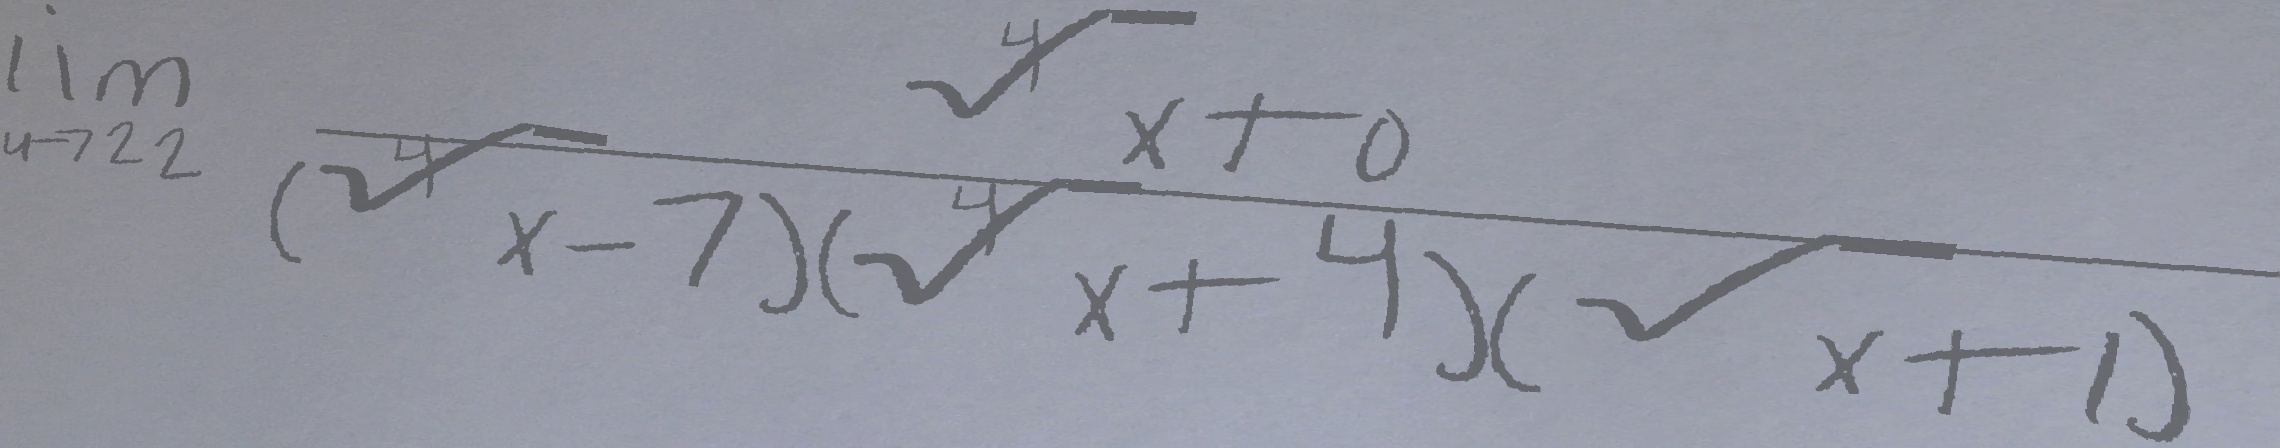 lim 4→22 \frac{\sqrt[4]{x+0}}{(\sqrt[4]{x-7})(\sqrt[4]{x+4})(\sqrt{x+1})}